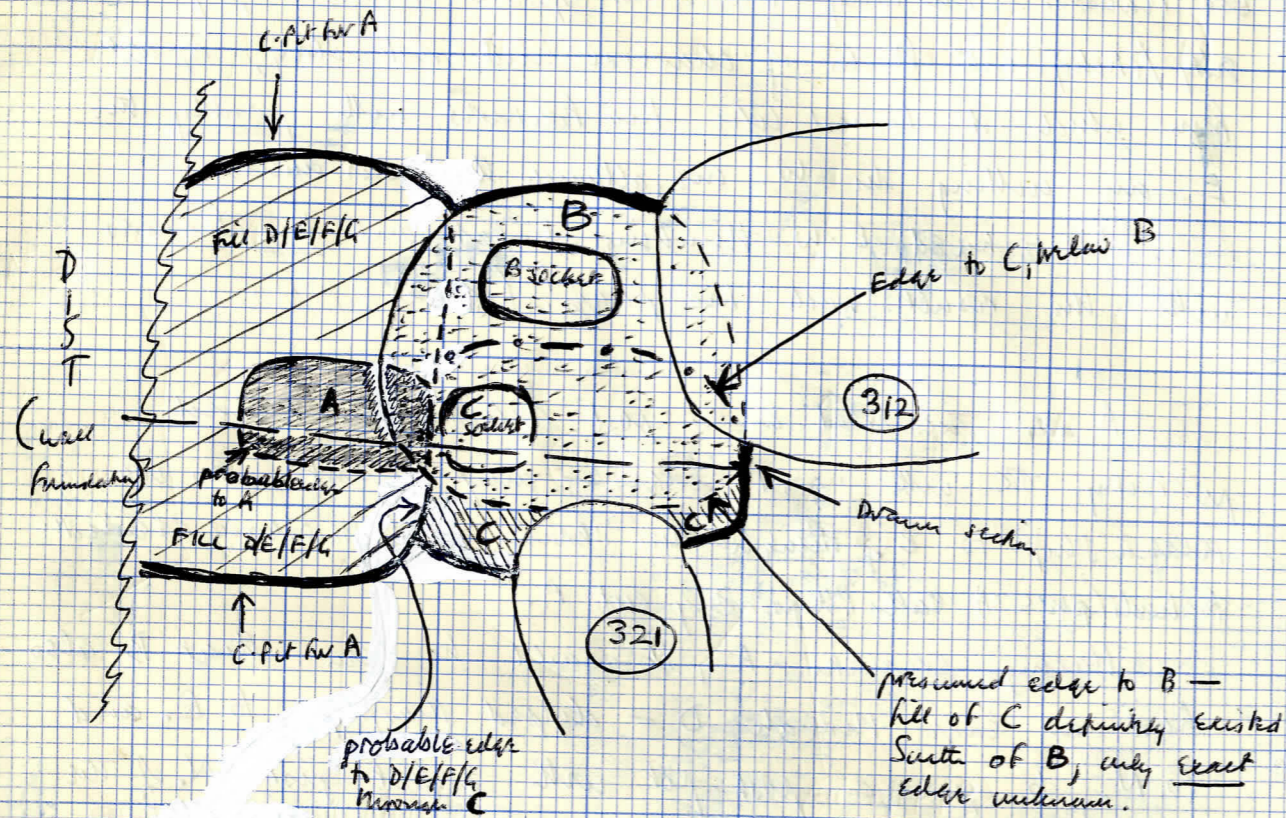 C. Pit for A
Fill D/E/F/G
B
B socket
Edge to C, below B
D
I
S
T
(wall
foundation)
A
C
socket
312
probable edge
to A
Fill D/E/F/G
C
C
Drawn section
C. Pit for A
321
probable edge
to D/E/F/G
through C
presumed edge to B —
fill of C definitely existed
South of B, only exact
edge unknown.